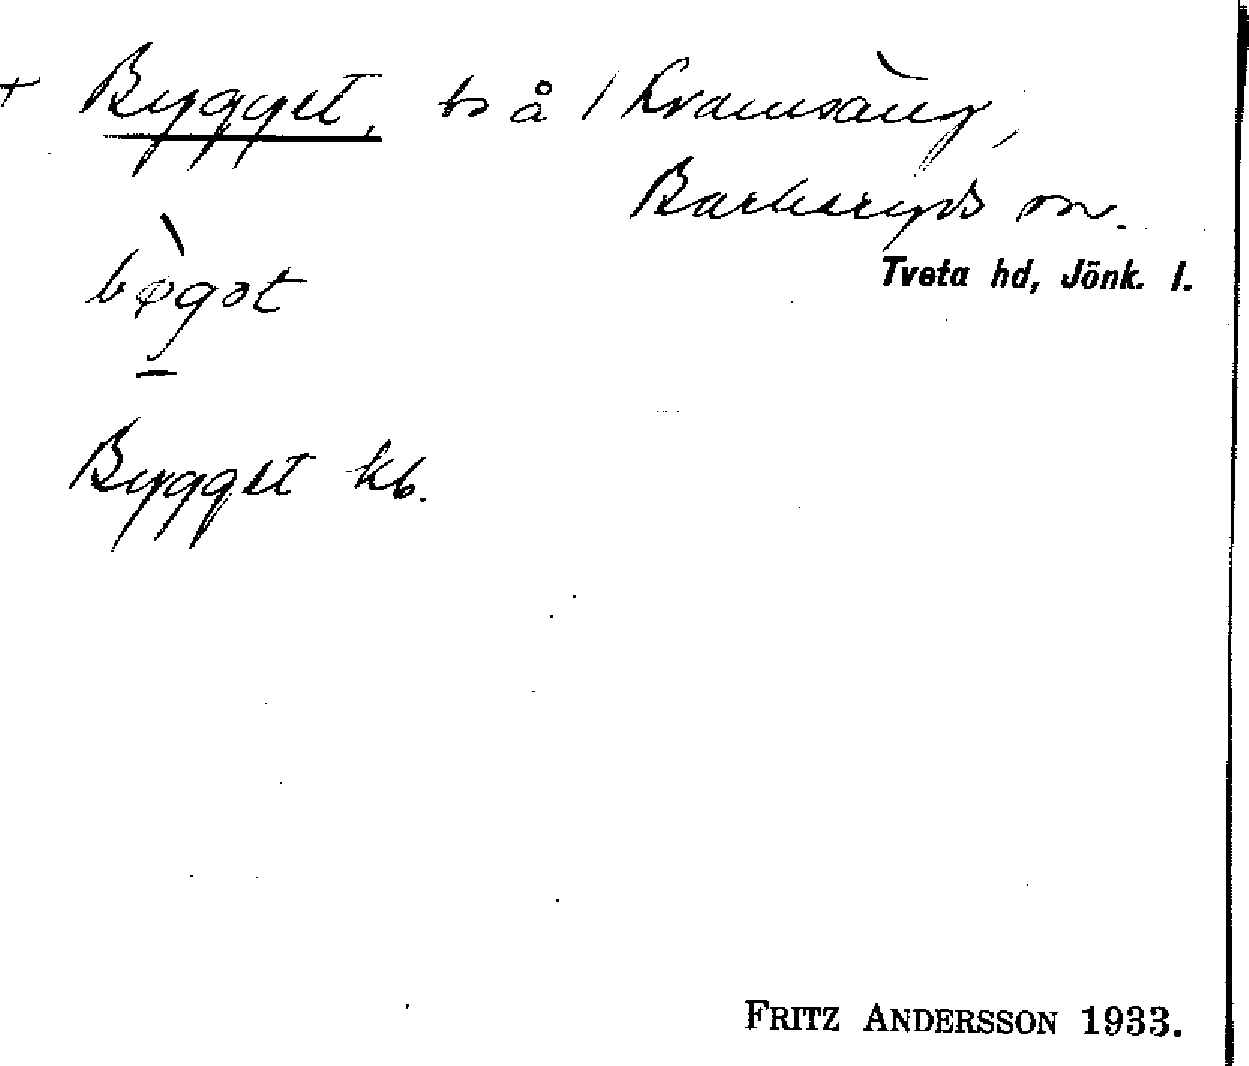 + Bygget, ts å / Kramsäng,
Barkeryds sn.
Tveta hd, Jönk. l.
bø̀gət
Bygget kb.
FRITZ ANDERSSON 1933.